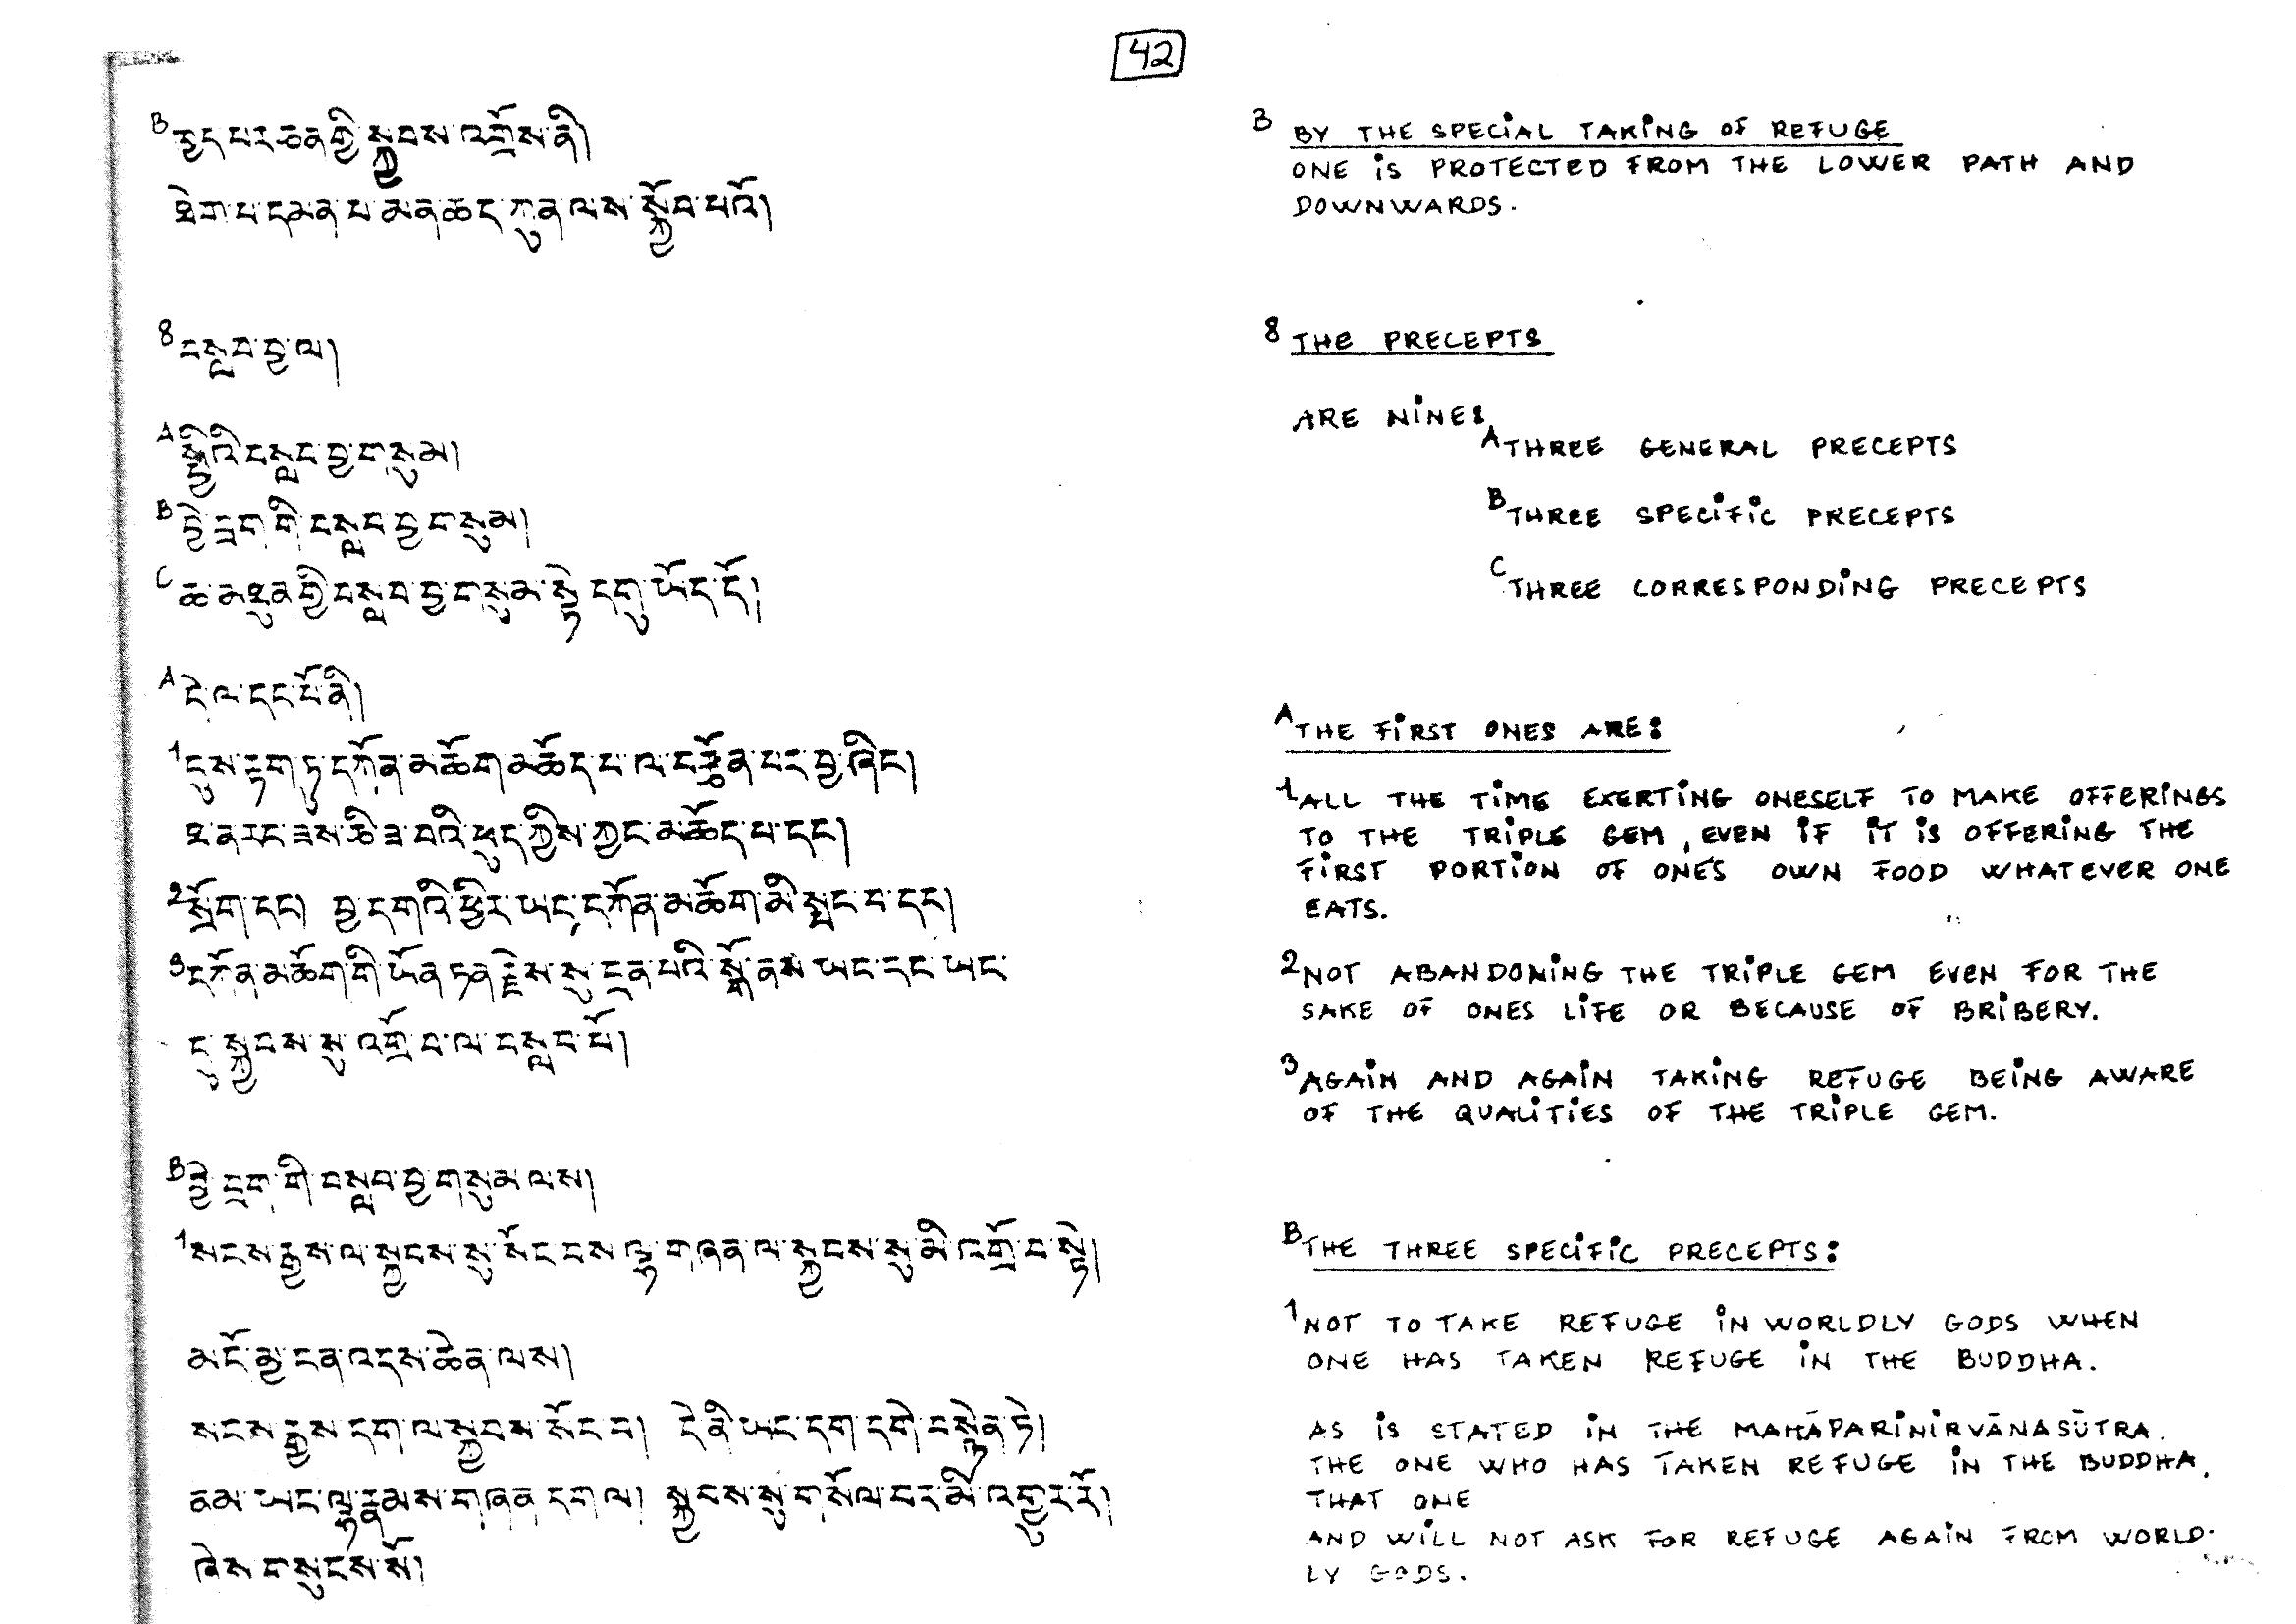 42
B ཁྱད་པར་ཅན་གྱི་སྐྱབས་འགྲོས་ནི།
ཐེག་པ་དམན་པ་མན་ཆད་ཀུན་ལས་སྐྱོབ་པའོ།
8 བསླབ་བྱ་ལ།
A སྤྱིའི་བསླབ་བྱ་གསུམ།
B བྱེ་བྲག་གི་བསླབ་བྱ་གསུམ།
C ཆ་མཐུན་གྱི་བསླབ་བྱ་གསུམ་སྟེ་དགུ་ཡོད་དོ།
A དེ་ལ་དང་པོ་ནི།
1 དུས་རྟག་ཏུ་དཀོན་མཆོག་མཆོད་པ་ལ་བརྩོན་པར་བྱ་ཞིང།
ཐ་ན་རང་ཟས་ཅི་ཟ་བའི་ཕུད་ཀྱིས་ཀྱང་མཆོད་པ་དང།
2 སྲོག་དང། བྱ་དགའི་ཕྱིར་ཡང་དཀོན་མཆོག་མི་སྤང་བ་དང།
3 དཀོན་མཆོག་གི་ཡོན་ཏན་རྗེས་སུ་དྲན་པའི་སྒོ་ནས་ཡང་དང་ཡང་
དུ་སྐྱབས་སུ་འགྲོ་བ་ལ་བསླབ་པོ།
B བྱེ་བྲག་གི་བསླབ་བྱ་གསུམ་ལས།
1 སངས་རྒྱས་ལ་སྐྱབས་སུ་སོང་བས་ལྷ་གཞན་ལ་སྐྱབས་སུ་མི་འགྲོ་བ་སྟེ།
མདོ་མྱ་ངན་འདས་ཆེན་ལས།
སངས་རྒྱས་དག་ལ་སྐྱབས་སོང་བ། དེ་ནི་ཡང་དག་དགེ་བསྙེན་ཏེ།
ནམ་ཡང་ལྷ་རྣམས་གཞན་དག་ལ། སྐྱབས་སུ་གསོལ་བར་མི་འགྱུར་རོ།
ཞེས་གསུངས་སོ།
B BY THE SPECIAL TAKING OF REFUGE
ONE IS PROTECTED FROM THE LOWER PATH AND
DOWNWARDS.
8 THE PRECEPTS
ARE NINE:
A THREE GENERAL PRECEPTS
B THREE SPECIFIC PRECEPTS
C THREE CORRESPONDING PRECEPTS
A THE FIRST ONES ARE:
1 ALL THE TIME EXERTING ONESELF TO MAKE OFFERINGS
TO THE TRIPLE GEM, EVEN IF IT IS OFFERING THE
FIRST PORTION OF ONES OWN FOOD WHATEVER ONE
EATS.
2 NOT ABANDONING THE TRIPLE GEM EVEN FOR THE
SAKE OF ONES LIFE OR BECAUSE OF BRIBERY.
3 AGAIN AND AGAIN TAKING REFUGE BEING AWARE
OF THE QUALITIES OF THE TRIPLE GEM.
B THE THREE SPECIFIC PRECEPTS:
1 NOT TO TAKE REFUGE IN WORLDLY GODS WHEN
ONE HAS TAKEN REFUGE IN THE BUDDHA.
AS IS STATED IN THE MAHĀPARINIRVĀNASŪTRA.
THE ONE WHO HAS TAKEN REFUGE IN THE BUDDHA,
THAT ONE
AND WILL NOT ASK FOR REFUGE AGAIN FROM WORLD-
LY GODS.